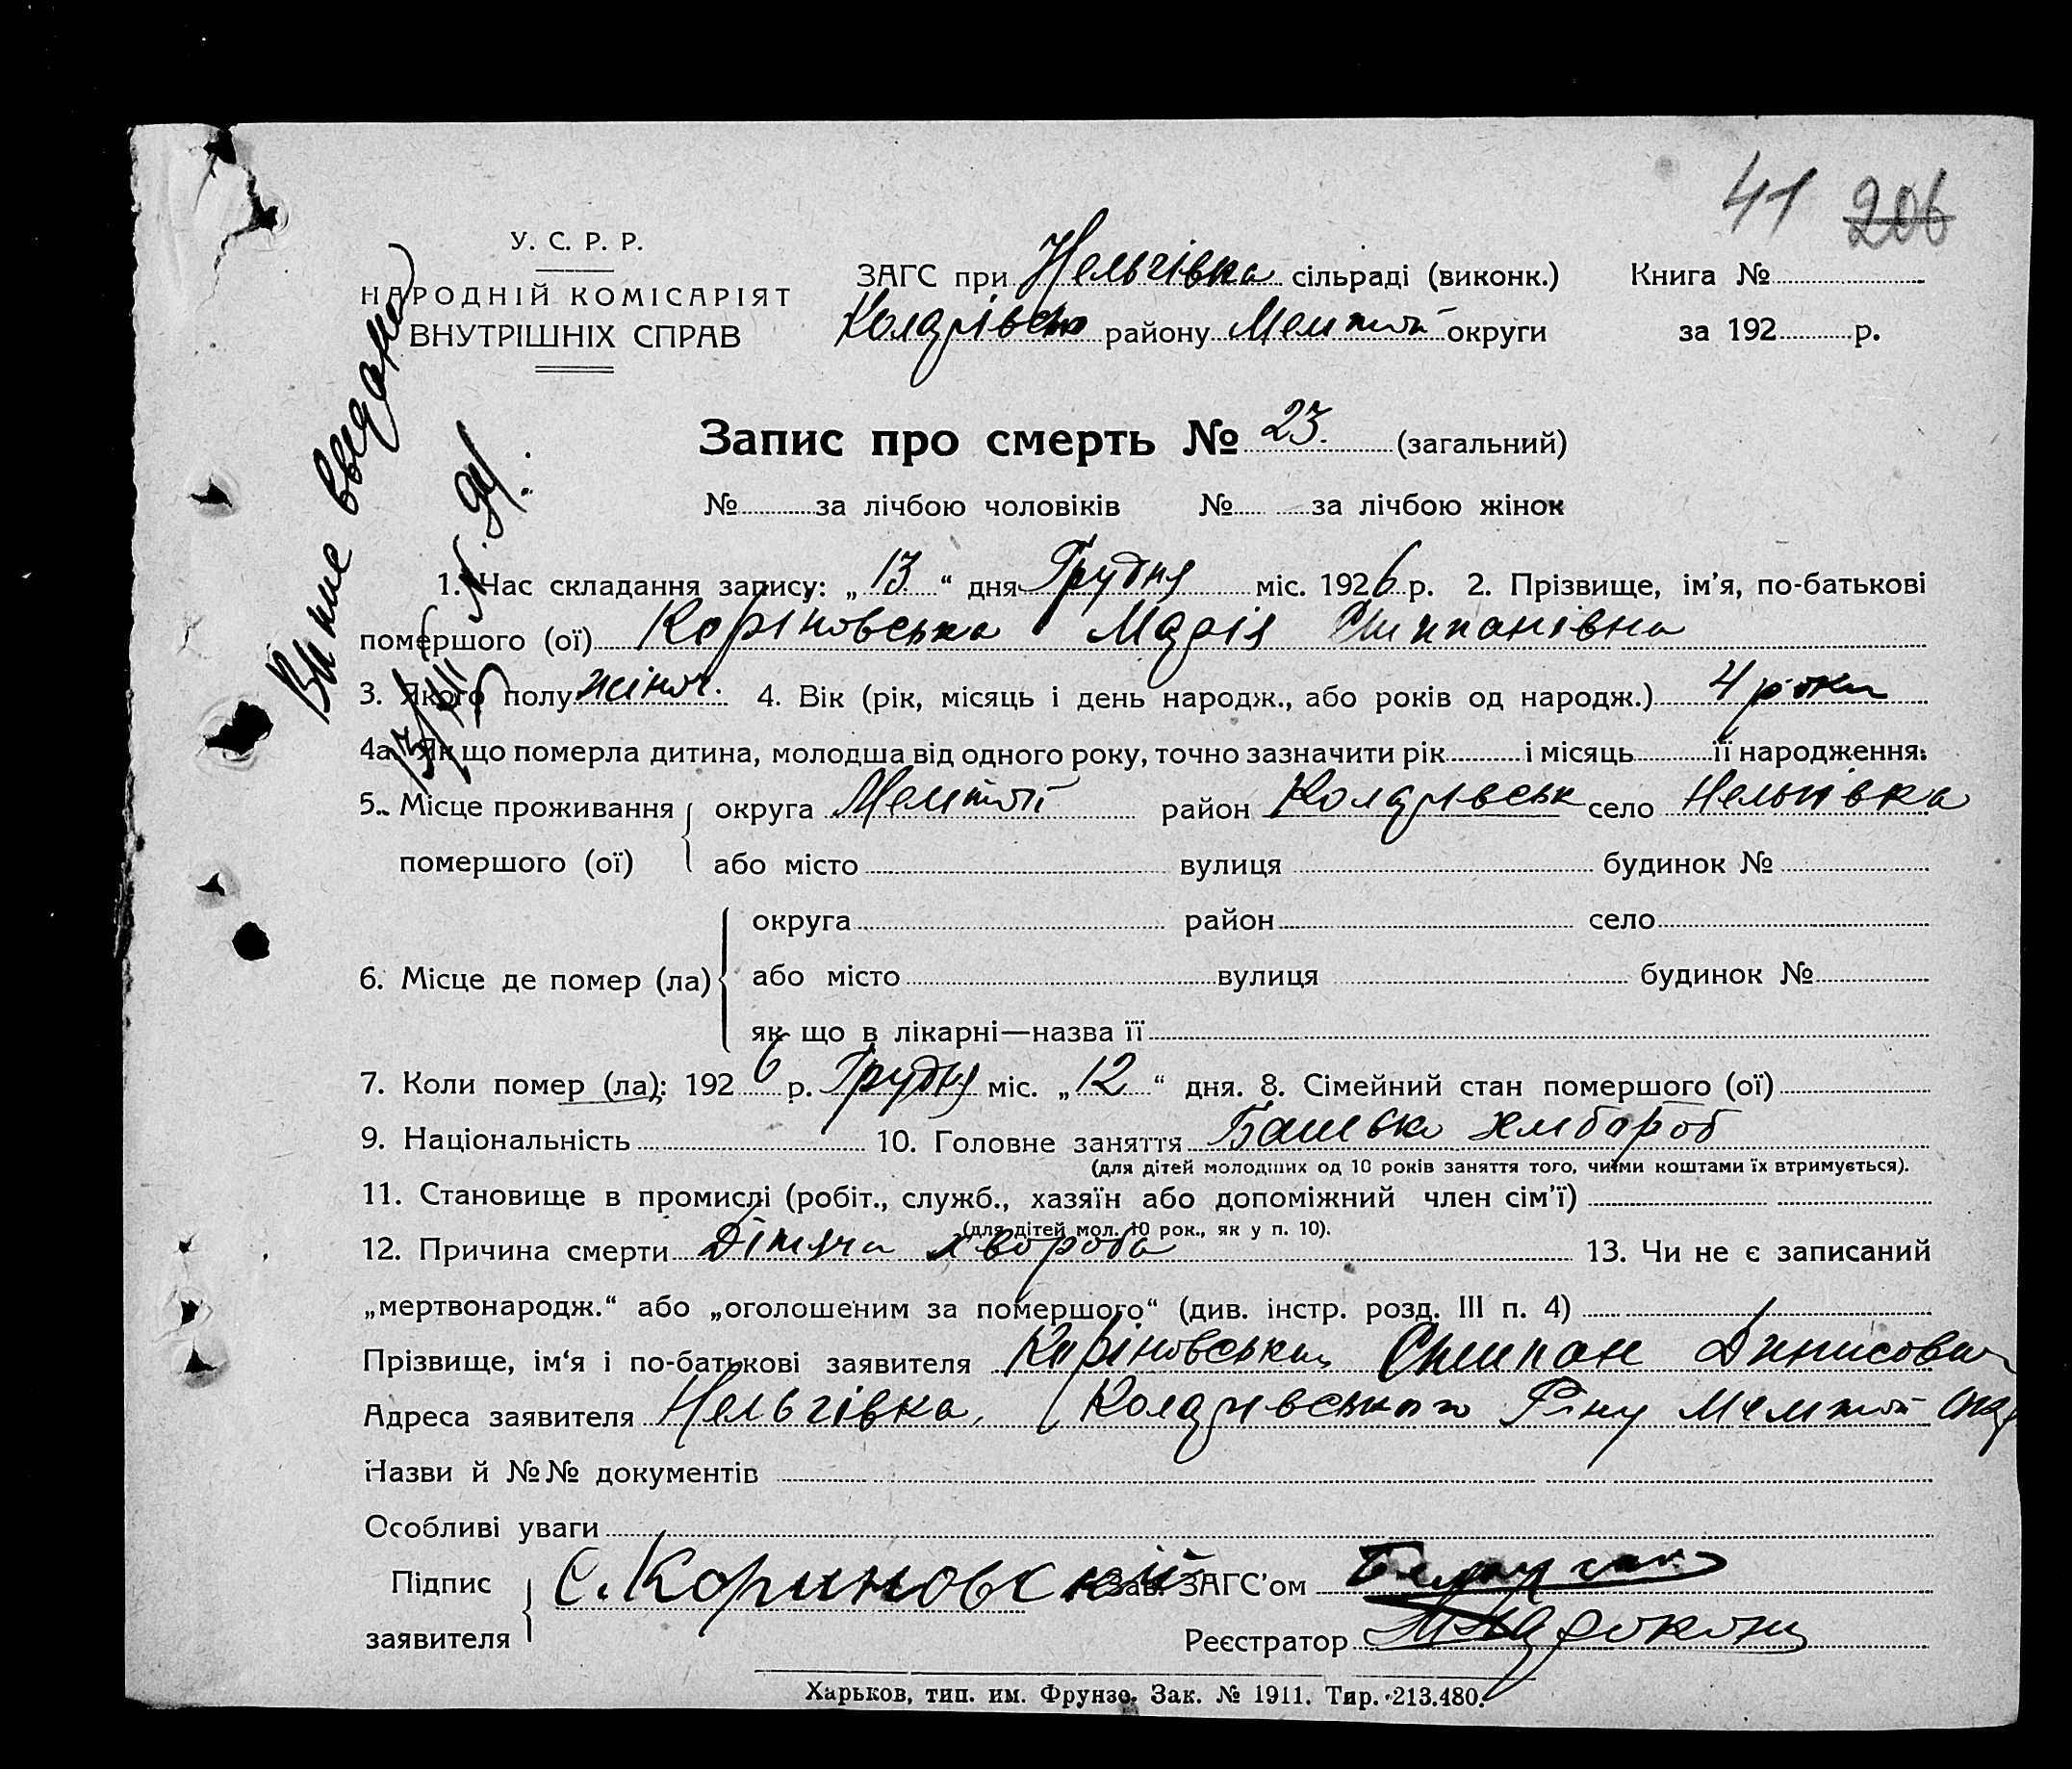 41 206
У. С. Р. Р.
НАРОДНІЙ КОМІСАРІЯТ
ВНУТРІШНІХ СПРАВ
ЗАГС при Нельгівка сільраді (виконк.) Книга №
району округи за 192 р.
Запис про смерть № 23. (загальний)
№ за лічбою чоловіків № за лічбою жінок
1. Час складання запису: „ 13 “ дня Грудня міс. 1926 р. 2. Прізвище, ім’я, по-батькові
помершого (ої) Коріновська Марія
3. Якого полу жіноч. 4. Вік (рік, місяць і день народж., або років од народж.) 4 роки
4а. Як що померла дитина, молодша від одного року, точно зазначити рік і місяць її народження.
5. Місце проживання округа район село Нельгівка
помершого (ої) або місто вулиця будинок №
округа район село
6. Місце де помер (ла) або місто вулиця будинок №
як що в лікарні—назва її
7. Коли помер (ла): 1926 р. Грудня міс. „ 12 “ дня. 8. Сімейний стан помершого (ої)
9. Національність 10. Головне заняття Батько хлібороб
(для дітей молодших од 10 років заняття того, чиїми коштами їх втримується).
11. Становище в промислі (робіт., служб., хазяїн або допоміжний член сім’ї)
(для дітей мол. 10 рок., як у п. 10).
12. Причина смерти Дітяча хвороба 13. Чи не є записаний
„мертвонародж.“ або „оголошеним за помершого“ (див. інстр. розд. III п. 4)
Прізвище, ім‘я і по-батькові заявителя Коріновський Степан
Адреса заявителя Нельгівка,
Назви й №№ документів
Особливі уваги
Підпис С. Кориновский Зав. ЗАГС’ом
заявителя Реєстратор
Харьков, тип. им. Фрунзе. Зак. № 1911. Тир. 213.480.